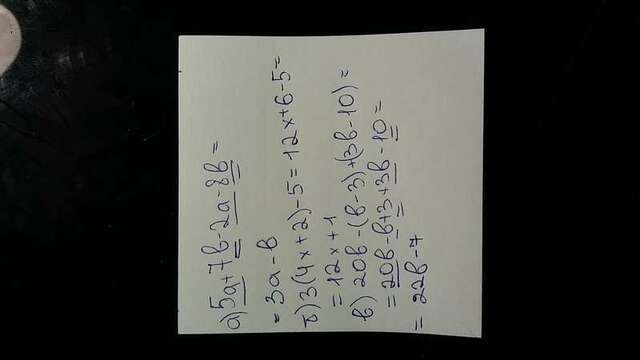 а) 5a+7b-2a-8b=
= 3a-b
б) 3(4x+2)-5=12x+6-5=
= 12x+1
в) 20b-(b-3)+(3b-10)=
= 20b-b+3+3b-10=
= 22b-7